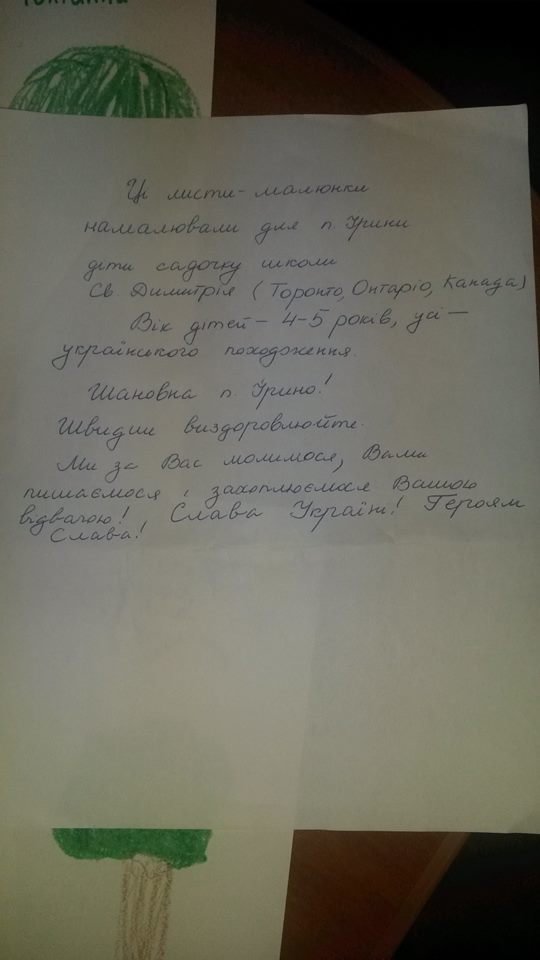 Ці листи-малюнки
намалювали для п. Ірини
діти садочку школи
Св. Димитрія (Торонто, Онтаріо, Канада)
Вік дітей – 4-5 років, усі –
українського походження.
Шановна п. Ірино!
Швидше виздоровлюйте.
Ми за Вас молимося, Вами
пишаємося і захоплюємося Вашою
відвагою! Слава Україні! Героям
Слава!